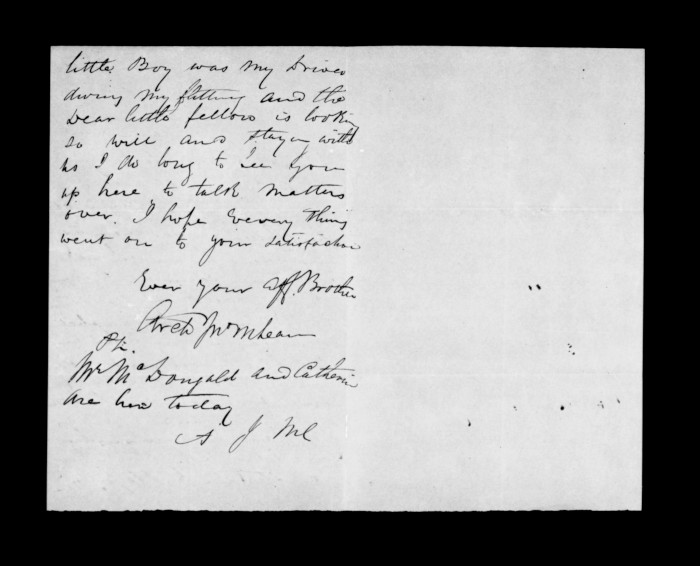 little Boy was my Driver
during my flitting and the
Dear little fellow is looking
so well and staying with
us I do long to see you
up here to talk matters
over. I hope Every thing
went on to your satisfaction
Ever your aff. Brother
Arch
Mr McDougald and Catherine
are here today
A J McL